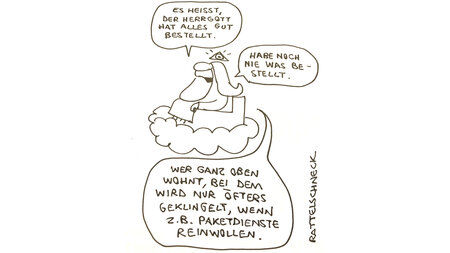 ES HEISST,
DER HERRGOTT
HAT ALLES GUT
BESTELLT.
HABE NOCH
NIE WAS BE-
STELLT.
WER GANZ OBEN
WOHNT, BEI DEM
WIRD NUR ÖFTERS
GEKLINGELT, WENN
Z.B. PAKETDIENSTE
REINWOLLEN.
RATTELSCHNECK